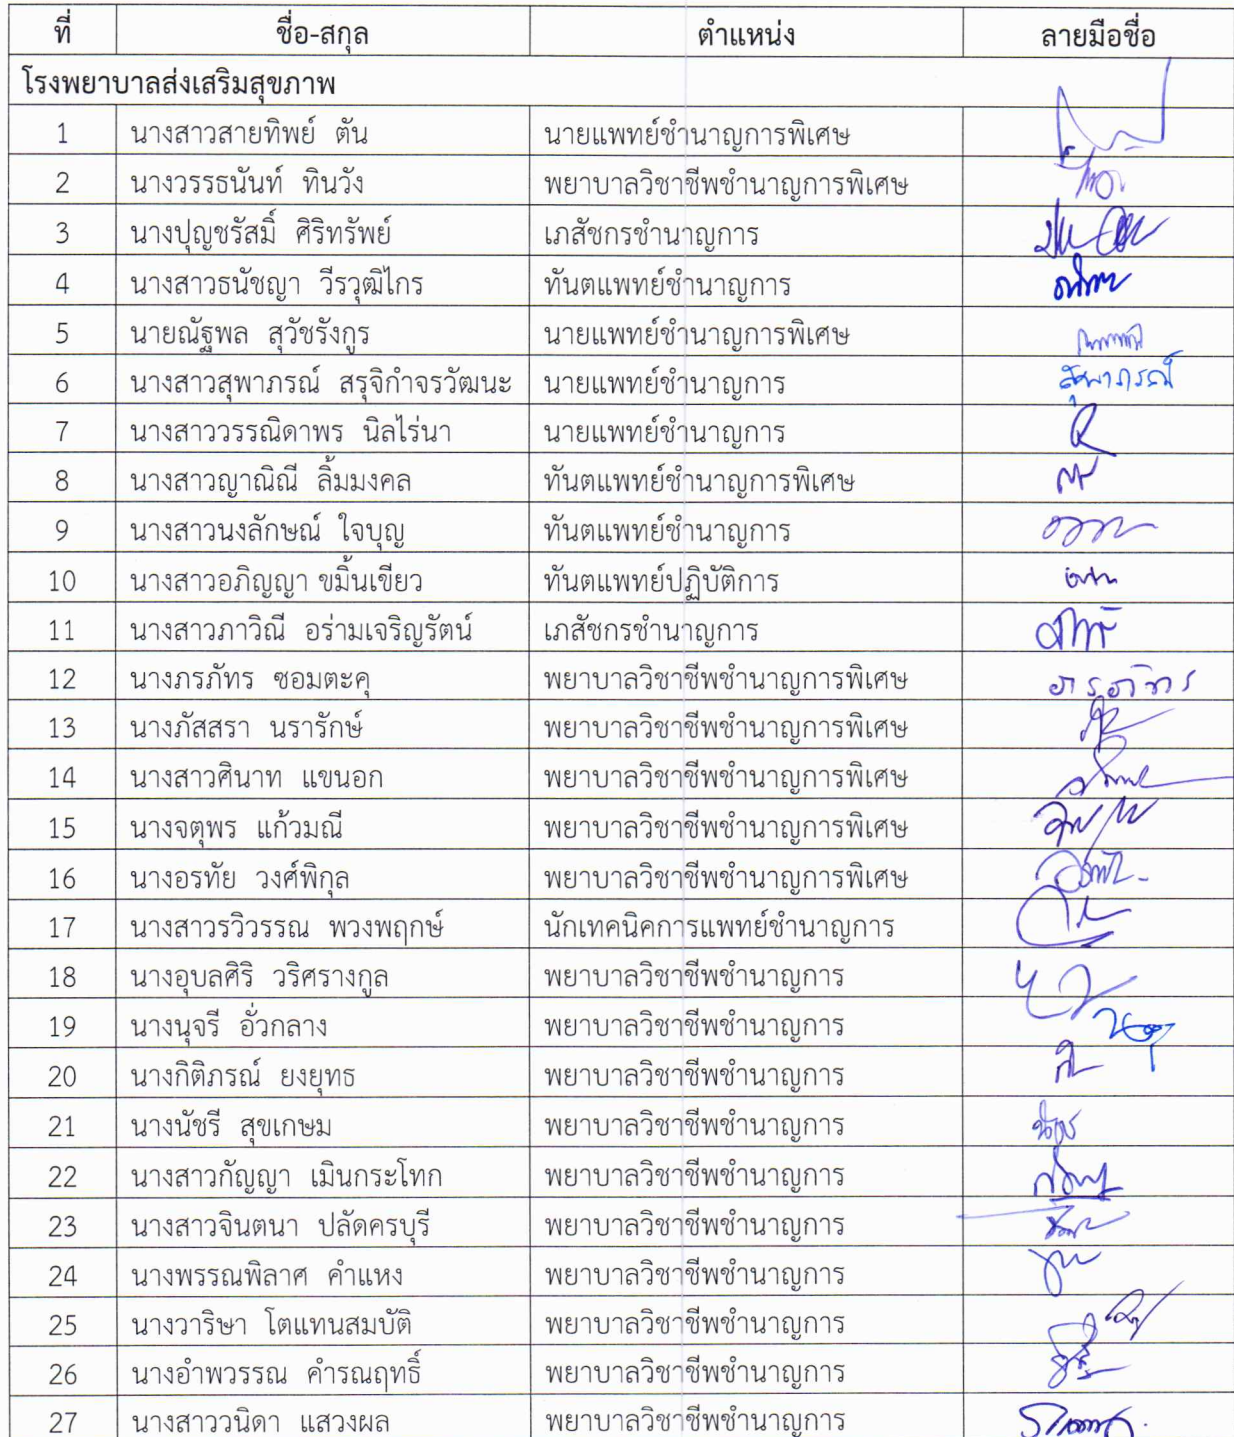 ที่ ชื่อ-สกุล ตำแหน่ง ลายมือชื่อ
โรงพยาบาลส่งเสริมสุขภาพ
1 นางสาวสายทิพย์ ตัน นายแพทย์ชำนาญการพิเศษ
2 นางวรรธนันท์ ทินวัง พยาบาลวิชาชีพชำนาญการพิเศษ
3 นางปุญชรัสมิ์ ศิริทรัพย์ เภสัชกรชำนาญการ
4 นางสาวธนัชญา วีรวุฒิไกร ทันตแพทย์ชำนาญการ
5 นายณัฐพล สุวัชรังกูร นายแพทย์ชำนาญการพิเศษ
6 นางสาวสุพาภรณ์ สรุจิกำจรวัฒนะ นายแพทย์ชำนาญการ สุพาภรณ์
7 นางสาววรรณิดาพร นิลไร่นา นายแพทย์ชำนาญการ
8 นางสาวญาณิณี ลิ้มมงคล ทันตแพทย์ชำนาญการพิเศษ
9 นางสาวนงลักษณ์ ใจบุญ ทันตแพทย์ชำนาญการ
10 นางสาวอภิญญา ขมิ้นเขียว ทันตแพทย์ปฏิบัติการ
11 นางสาวภาวิณี อร่ามเจริญรัตน์ เภสัชกรชำนาญการ
12 นางภรภัทร ซอมตะคุ พยาบาลวิชาชีพชำนาญการพิเศษ
13 นางภัสสรา นรารักษ์ พยาบาลวิชาชีพชำนาญการพิเศษ
14 นางสาวศินาท แขนอก พยาบาลวิชาชีพชำนาญการพิเศษ
15 นางจตุพร แก้วมณี พยาบาลวิชาชีพชำนาญการพิเศษ
16 นางอรทัย วงศ์พิกุล พยาบาลวิชาชีพชำนาญการพิเศษ
17 นางสาวรวิวรรณ พวงพฤกษ์ นักเทคนิคการแพทย์ชำนาญการ
18 นางอุบลศิริ วริศรางกูล พยาบาลวิชาชีพชำนาญการ
19 นางนุจรี อั่วกลาง พยาบาลวิชาชีพชำนาญการ
20 นางกิติภรณ์ ยงยุทธ พยาบาลวิชาชีพชำนาญการ
21 นางนัชรี สุขเกษม พยาบาลวิชาชีพชำนาญการ
22 นางสาวกัญญา เมินกระโทก พยาบาลวิชาชีพชำนาญการ
23 นางสาวจินตนา ปลัดครบุรี พยาบาลวิชาชีพชำนาญการ
24 นางพรรณพิลาศ คำแหง พยาบาลวิชาชีพชำนาญการ
25 นางวาริษา โตแทนสมบัติ พยาบาลวิชาชีพชำนาญการ
26 นางอำพวรรณ คำรณฤทธิ์ พยาบาลวิชาชีพชำนาญการ
27 นางสาววนิดา แสวงผล พยาบาลวิชาชีพชำนาญการ